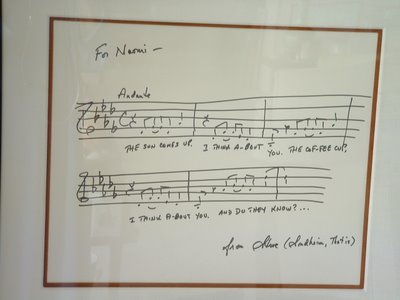 For Naomi —
Andante
THE SUN COMES UP, I THINK A-BOUT YOU. THE COF-FEE CUP,
I THINK A-BOUT YOU. AND DO THEY KNOW?...
from Steve (Sondheim, That is)